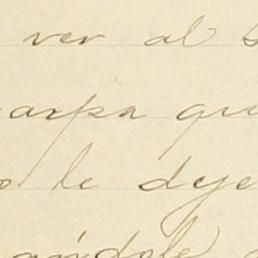 ver al
arpa qu
o le dye
ándole